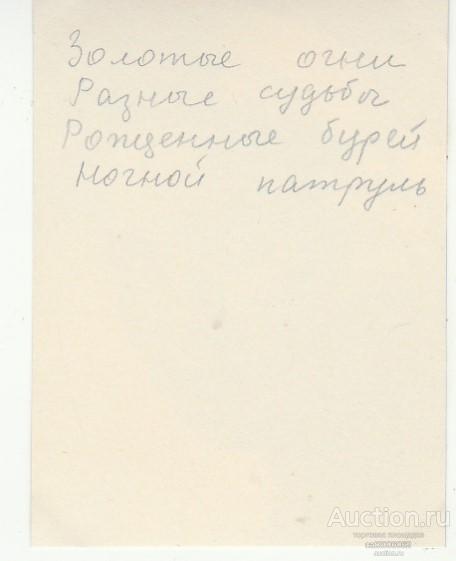 Золотые огни
Разные судьбы
Рожденные бурей
Ночной патруль
Auction.ru
торговая площадка
auction.ru